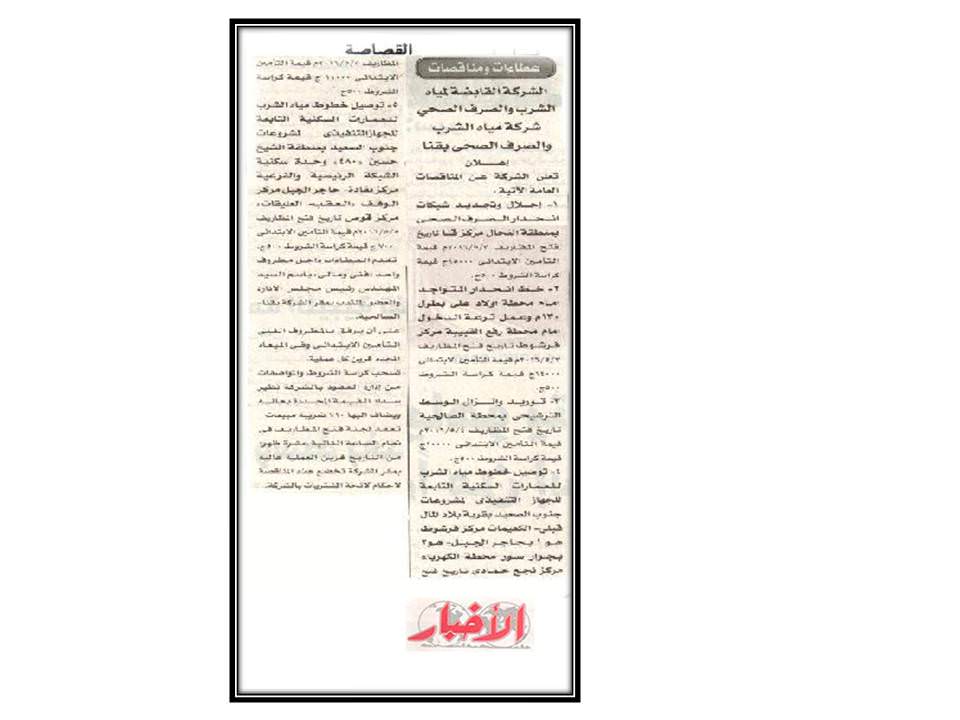 القصاصة
عطاءات ومناقصات
الشركة القابضة لمياه
الشرب والصرف الصحي
شركة مياه الشرب
والصرف الصحى بقنا
إعلان
تعلن الشركة عن المناقصات
العامة الآتية.
١- إحلال وتجديد شبكات
انحدار الصرف الصحى
بمنطقة مركز قنا تاريخ
فتح المظاريف ٢٠١٦/٥/٢م قيمة
التأمين الابتدائى ١٥٠٠٠ج قيمة
كراسة الشروط ٥٠٠ج.
٢- خط انحدار المتواجد
أمام محطة اولاد على بطول
١٣٠م وعمل ترعة الدخول
أمام محطة رفع القبيبة مركز
فرشوط تاريخ فتح المظاريف
٢٠١٦/٥/٣م قيمة التأمين الابتدائى
١٤٠٠٠ج قيمة كراسة الشروط
٥٠٠ج.
٣- توريد وإنزال الوسط
الترشيحى بمحطة الصالحية
تاريخ فتح المظاريف ٢٠١٦/٥/٤م
قيمة التأمين الابتدائى ٢٠٠٠٠ج
قيمة كراسة الشروط ٥٠٠ج.
٤- توصيل خطوط مياه الشرب
للعمارات السكنية التابعة
للجهاز التنفيذى لمشروعات
جنوب الصعيد بقرية بلاد المال
قبلى- الكعيمات مركز فرشوط
هو ١ بحاجر الجبل- هو٢
بجوار سور محطة الكهرباء
مركز نجع حمادى تاريخ فتح
المظاريف ٢٠١٦/٥/٤م قيمة التأمين
الابتدائى ١٠٠٠٠ج قيمة كراسة
الشروط ٥٠٠ج
٥- توصيل خطوط مياه الشرب
للعمارات السكنية التابعة
للجهاز التنفيذى لمشروعات
جنوب الصعيد بمنطقة الشيخ
حسين «٤٨٠» وحدة سكنية
الشبكة الرئيسية والفرعية
مركز نقادة- حاجر الجبل مركز
الوقف «العقب- العليقات»
مركز قوص تاريخ فتح المظاريف
٢٠١٦/٥/٥م قيمة التأمين الابتدائى
٧٠٠٠ج قيمة كراسة الشروط ٥٠٠ج.
تقدم العطاءات داخل مظروف
واحد «فنى ومالى» باسم السيد
المهندس رئيس مجلس الادارة
والعضو المنتدب بمقر الشركة بقنا-
الصالحية.
على أن يرفق بالمظروف الفنى
التأمين الابتدائى وفى الميعاد
المحدد قرين كل عملية.
تسحب كراسة الشروط والمواصفات
من إدارة العقود بالشركة نظير
سداد القيمة المحددة بعاليه
ويضاف اليها ١٠٪ ضريبة مبيعات
تعقد لجنة فتح المظاريف فى
تمام الساعة الثانية عشرة ظهرا
من التاريخ قرين العملية عاليه
بمقر الشركة تخضع هذه المناقصة
لاحكام لائحة المشتريات بالشركة.
الأخبار